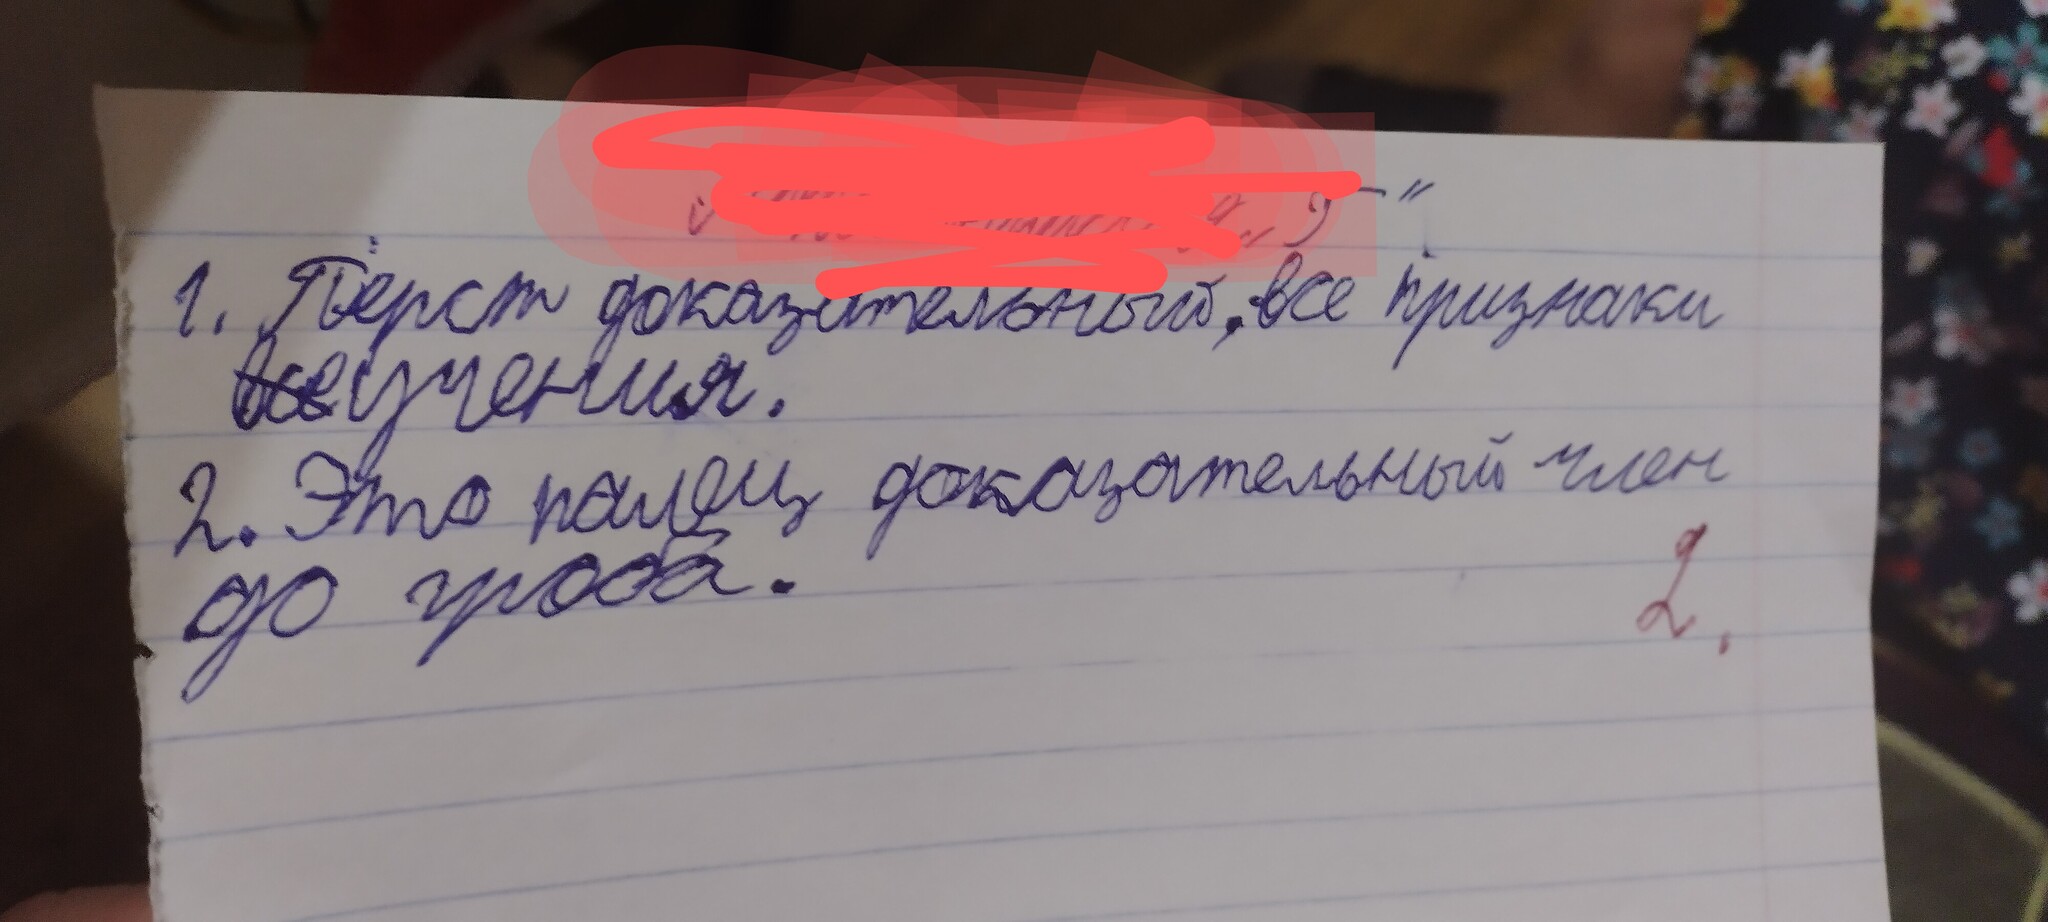 1. Пёрст доказательный, все признаки
учения.
2. Это палец доказательный член
до гроба.
2.